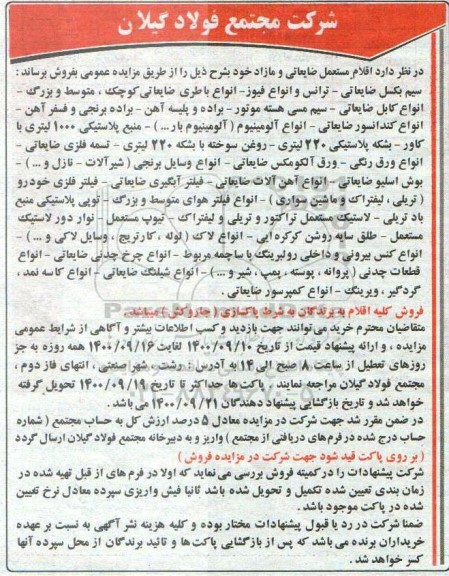 شرکت مجتمع فولاد گیلان
در نظر دارد اقلام مستعمل ضایعاتی و مازاد خود بشرح ذیل را از طریق مزایده عمومی بفروش برساند :
سیم بکسل ضایعاتی - ترانس و انواع فیوز- انواع باطری ضایعاتی کوچک ، متوسط و بزرگ -
انواع کابل ضایعاتی - سیم مسی هسته موتور - براده و پلیسه آهن - براده برنجی و فسفر آهن -
انواع کندانسور ضایعاتی - انواع آلومینیوم ( آلومینیوم بار... ) - منبع پلاستیکی ۱۰۰۰ لیتری با
کاور - بشکه پلاستیکی ۲۲۰ لیتری - روغن سوخته با بشکه ۲۲۰ لیتری - تسمه فلزی ضایعاتی -
انواع ورق رنگی - ورق آلکومکس ضایعاتی - انواع وسایل برنجی ( شیرآلات - نازل و ... ) -
بوش اسلیو ضایعاتی - انواع آهن آلات ضایعاتی - فیلتر آبگیری ضایعاتی - فیلتر فلزی خودرو
( تریلی ، لیفتراک و ماشین سواری ) - انواع فیلتر هوای متوسط و بزرگ - توپی پلاستیکی منبع
باد تریلی - لاستیک مستعمل تراکتور و تریلی و لیفتراک - تیوپ مستعمل - نوار دور لاستیک
مستعمل - طلق سایه روشن کرکره ایی - انواع لاک ( لوله ، کارتریج ، وسایل لاکی و ... ) -
انواع کنس بیرونی و داخلی رولبرینگ با ساچمه مربوط - انواع چرخ چدنی ضایعاتی - انواع
قطعات چدنی ( پروانه ، پوسته ، پمپ ، شیر و ... ) - انواع شیلنگ ضایعاتی - انواع کاسه نمد ،
گردگیر ، ویرینگ - انواع کمپرسور ضایعاتی .
فروش کلیه اقلام به برندگان به شرط پاکسازی ( جاروکش ) میباشد.
متقاضیان محترم خرید می توانند جهت بازدید و کسب اطلاعات بیشتر و آگاهی از شرایط عمومی
مزایده ، و ارائه پیشنهاد قیمت از تاریخ ۱۴۰۰/۰۹/۱۰ لغایت ۱۴۰۰/۰۹/۱۶ همه روزه به جز
روزهای تعطیل از ساعت ۸ صبح الی ۱۴ به آدرس : رشت ، شهر صنعتی ، انتهای فاز دوم ،
مجتمع فولاد گیلان مراجعه نمایند . پاکت ها حداکثر تا تاریخ ۱۴۰۰/۰۹/۱۹ تحویل گرفته
خواهد شد و تاریخ بازگشایی پیشنهاد دهندگان ۱۴۰۰/۰۹/۲۱ می باشد .
در ضمن مقرر شد جهت شرکت در مزایده معادل ۵ درصد ارزش کل به حساب مجتمع ( شماره
حساب درج شده در فرم های دریافتی از مجتمع ) واریز و به دبیرخانه مجتمع فولاد گیلان ارسال گردد
( بر روی پاکت قید شود جهت شرکت در مزایده فروش )
شرکت پیشنهادات را در کمیته فروش بررسی می نماید که اولا در فرم های از قبل تهیه شده در
زمان بندی تعیین شده تکمیل و تحویل شده باشد ثانیا فیش واریزی سپرده معادل نرخ تعیین
شده در پاکت موجود باشد .
ضمنا شرکت در رد یا قبول پیشنهادات مختار بوده و کلیه هزینه نشر آگهی به نسبت بر عهده
خریداران برنده می باشد که پس از بازگشایی پاکت ها و تائید برندگان از محل سپرده آنها
کسر خواهد شد .